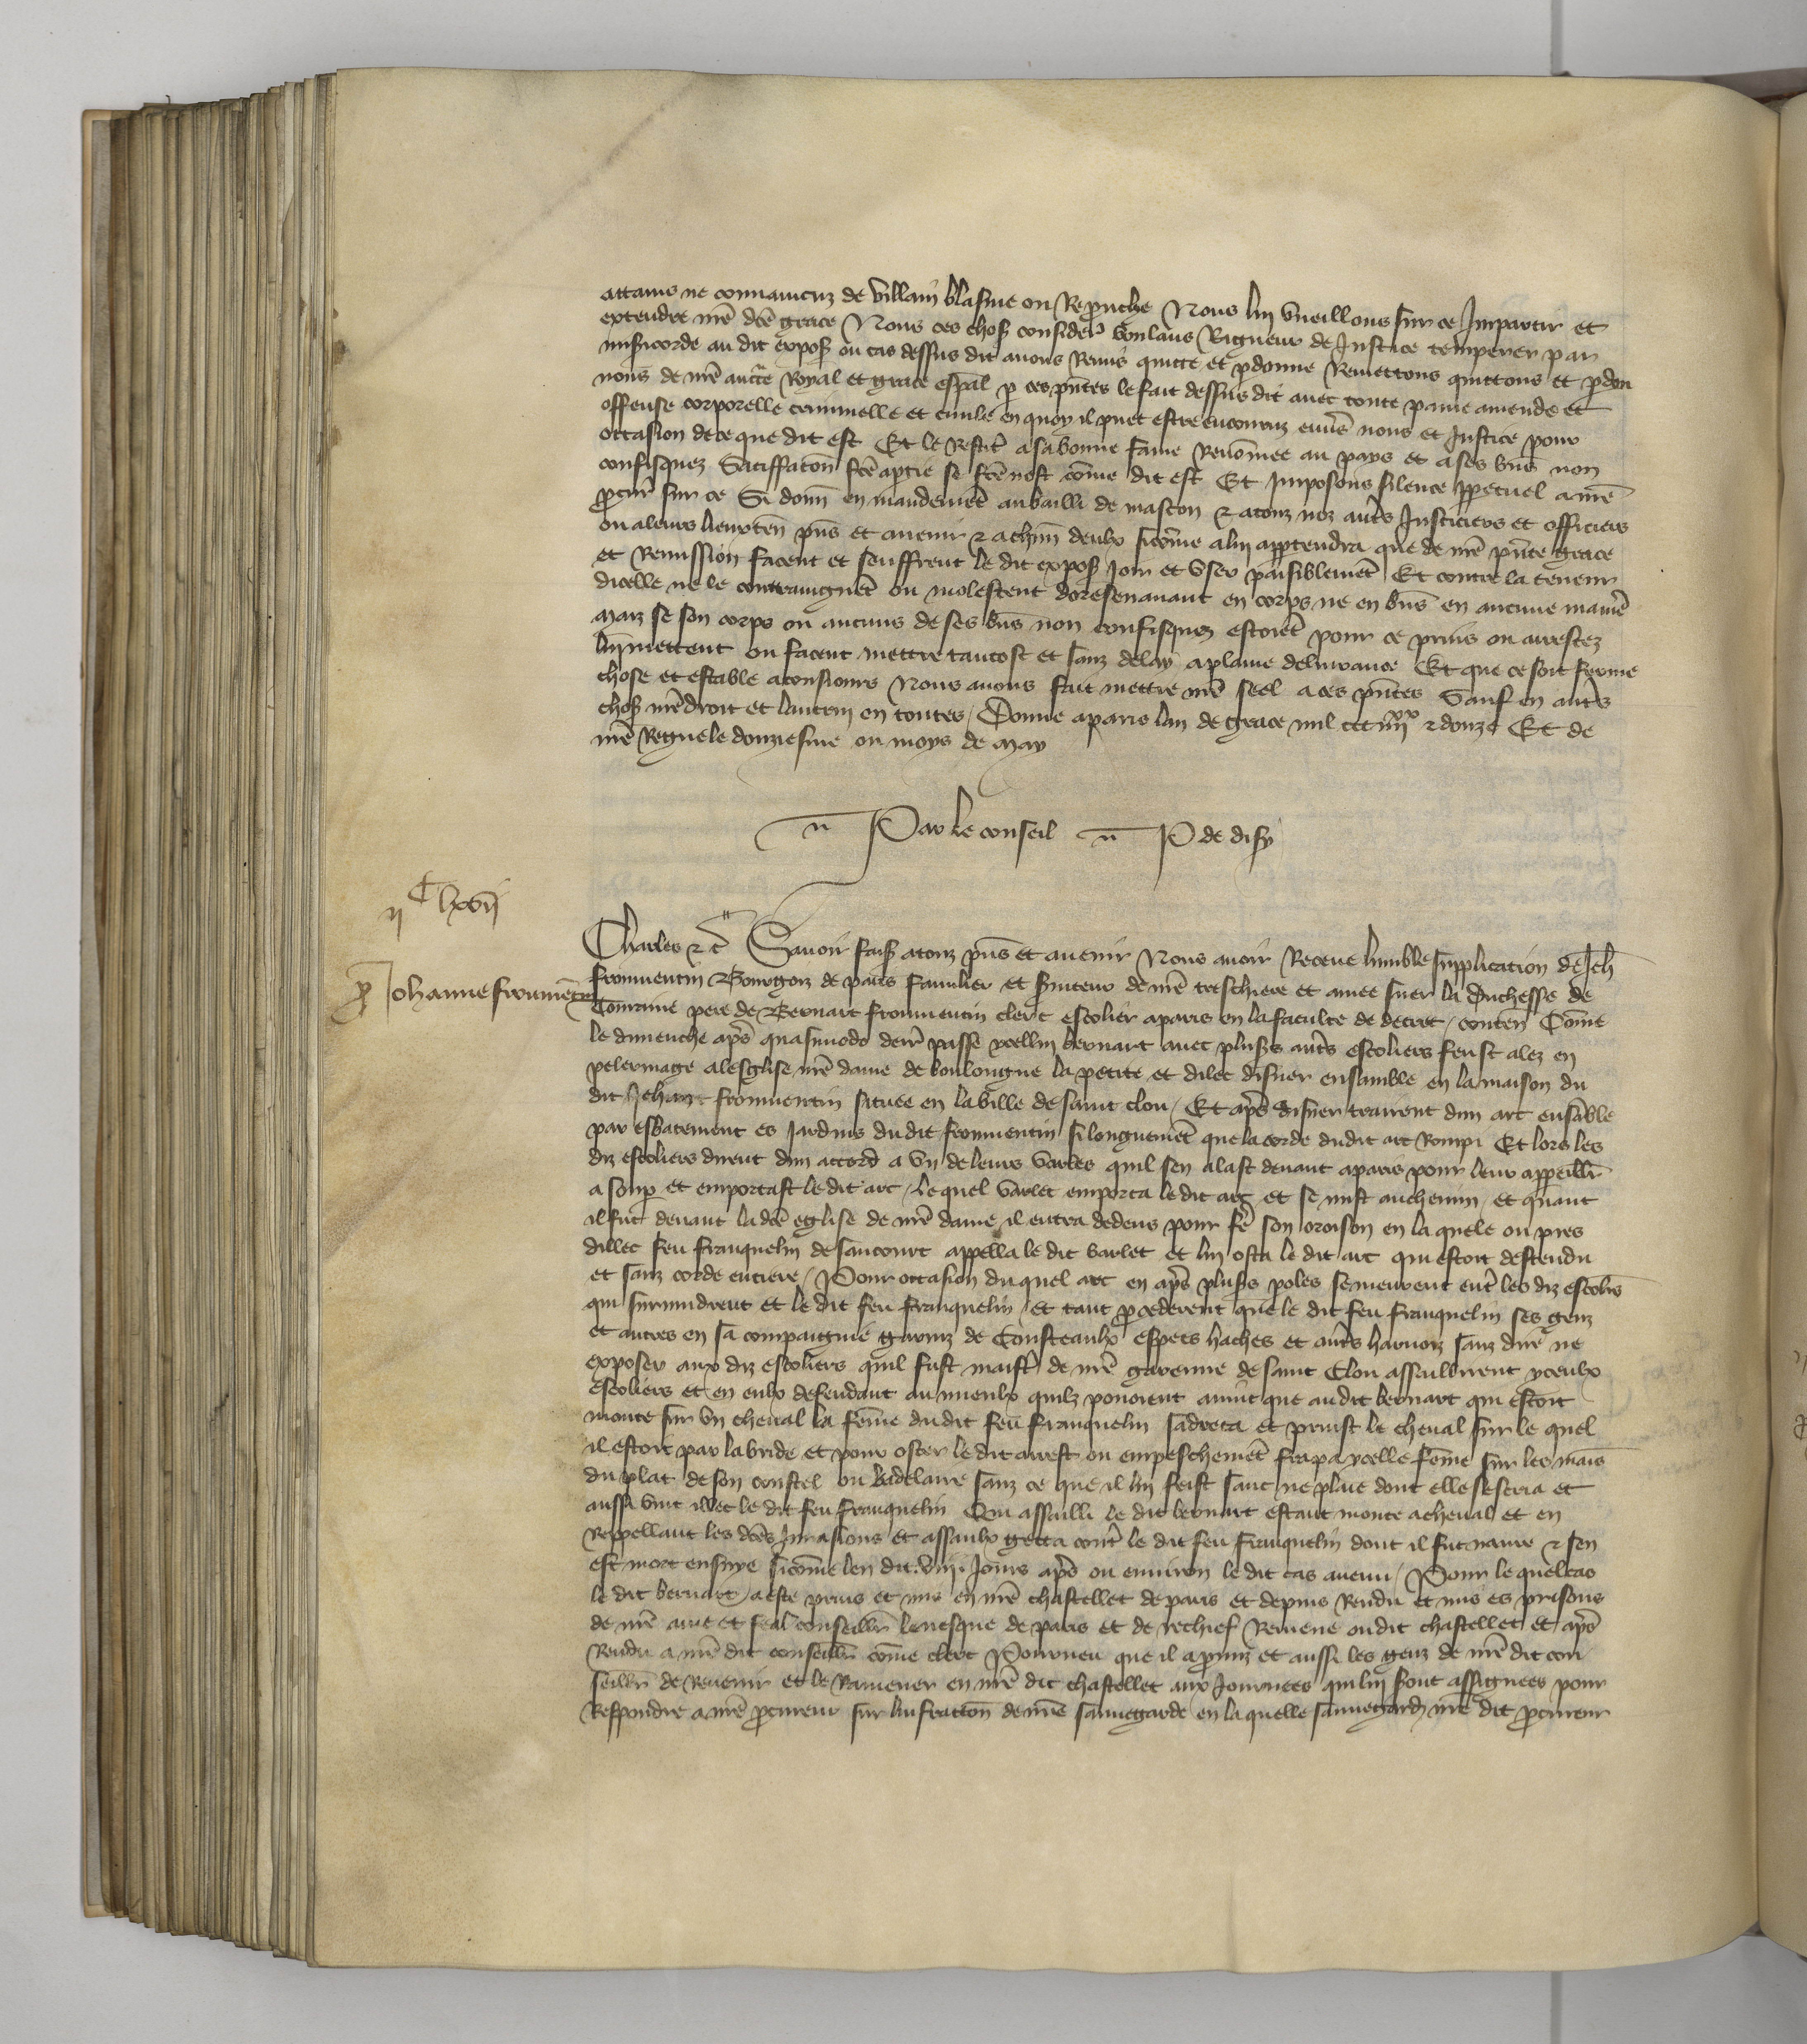 attains ne convaincuz de villain blasme ou Reprouche Nous lui vueillons sur ce Impartir et
extendre nr̃e dc̃e grace Nous ces chos̃ consider̃ voulans Rigueur de Justice temperer par
misericorde au dit expos̃ ou cas dessus dit avons Remis quitté et p̃donne Remettons quittons et p̃don
nons de nr̃e auct̃e Royal et grace esp̃al p̃ ces pñtes le fait dessus dit avec toute paine amende et
offense corporelle criminelle et civile en quoy il puet estre encouruz env̾s nous et Justice pour
occasion de ce que dit est Et le Restit̃ a sa bonne fame Renõmee au pays et a ses bñs non
confisquez Satiffacõn fc̃e a p̃tie se fc̃e nest cõme dit est Et Imposons silence p̃petuel a nr̃e
p̃cur̃ sur ce Si donñ en mandemẽt au bailli de mascon & a touz noz aut̃s Justiciers et officiers
ou a leurs lieuxteñ pñs et avenir & a chm̃ deulx sicõme a lui app̃tendra que de nr̃e pñte grace
et Remission facent et seuffrent le dit expos̃ Joir et user paisiblemẽt Et contre la teneur
dicelle ne le contraingnẽt ou molestent doresenavant en corps ne en bñs en aucune manie͂
Maiz se son corps ou aucuns de ses bñs non confisquez estoiẽt pour ce prins ou arrestez
lui mettent ou facent mettre tantost et sanz delay a plaine delivrance Et que ce soit ferme
chose et estable a tousiours Nous avons fait mettre nr̃e seel a ces pñtes Sauf en aut̃s
chos̃ nr̃e droit et lautruy en toutes / Donne a paris lan de grace mil ccc iiii^xx & douze Et de
nr̃e Regne le douziesme ou moys de May
ñ Par le conseil ñ P de disy
ii^C lxvii
Charles &c̃ Savoir fais̃ a touz pñs et avenir Nous avoir Receue lumble supplication de Jeh̃
p̃ Johanne fromẽtin
fromentin Bourgois de paris familier et s̃viteur de nr̃e treschiere et amee suer la duchesse de
Touraine pere de Bernart fromentin clerc escolier a paris en la faculte de decret / conteñ Cõme
le dimenche ap̃s quasimodo derr̃ passé ycellui bernart avec plus̃s aut̃s escoliers feust alez en
pelerinage a lesglise nr̃e dame de boulongne la petite et dilec disner ensamble en la maison du
dit Jehan fromentin située en la ville de saint clou / Et ap̃s disner trairent dun arc ensãble
par esbatement es Jardins du dit fromentin si longuemẽt que la corde dudit arc Rompi Et lors les
diz escoliers dirent dun accord a un de leurs varles quil sen alast devant a paris pour leur appeillr̃
a soup̃ et emportast le dit arc / le quel varlet emporta le dit arc et se mist au chemin / et quant
il fut devant la dc̃e eglise de nr̃e dame il entra dedens pour fe͂ son oroison en la quele ou pres
dillec feu franquelin de sancourt appella le dit varlet et lui osta le dit arc qui estoit destendu
et sanz corde entiere / Pour occasion du quel arc en ap̃s plus̃s p̃oles se meurent ent̃ les diz escolĩs
qui survindrent et le dit feu franquelin / et tant p̃cederent que le dit feu franquelin ses genz
et autres en sa compaignie garniz de Cousteaulx espees haches et aut̃s harnoiz sanz dire ne
exposer aux diz escoliers quil fust maist̃ de nr̃e garenne de saint Clou assaillirent yceulx
escoliers et en eulx defendant au mieulx quilz pouoient avint que au dit bernart qui estoit
monte sur un cheval la fẽme du dit feu franquelin sadreca et prinst le cheval sur le quel
il estoit par la bride et pour oster le dit arrest ou empeschemẽt frapa ycelle fẽme sur les mains
du plat de son coustel ou badelaire sanz ce que il lui feist sanc ne plaie dont elle sescria et
aussi vint illec le dit feu franquelin Qui assailli le dit bernart estant monte a cheval et en
Rappellant les dc̃es Invasions et assaulx getta cont̃ le dit feu franquelin dont il fut navre & sen
est mort ensuye sicõme len dit .viii. Jours ap̃s ou environ le dit cas avenu / Pour le quel cas
le dit bernart a este prins et mis en nr̃e chastellet de paris et depuis Rendu et mis es prisons
de nr̃e amé et feal conseillr̃ levesque de paris et de rechief Remené ou dit chastellet et ap̃s
Rendu a nr̃e dit conseillr̃ cõme clerc Pourveu que il a p̃miz et aussi les genz de nr̃e dit con
seillr̃ de Revenir et le Ramener en nr̃e dit chastellet aux Journees qui lui sont assignees pour
Respondre a nr̃e p̃cureur sur linfraccõn de nr̃e sauvegarde en la quelle sauvegard̃ nr̃e dit p̃cureur